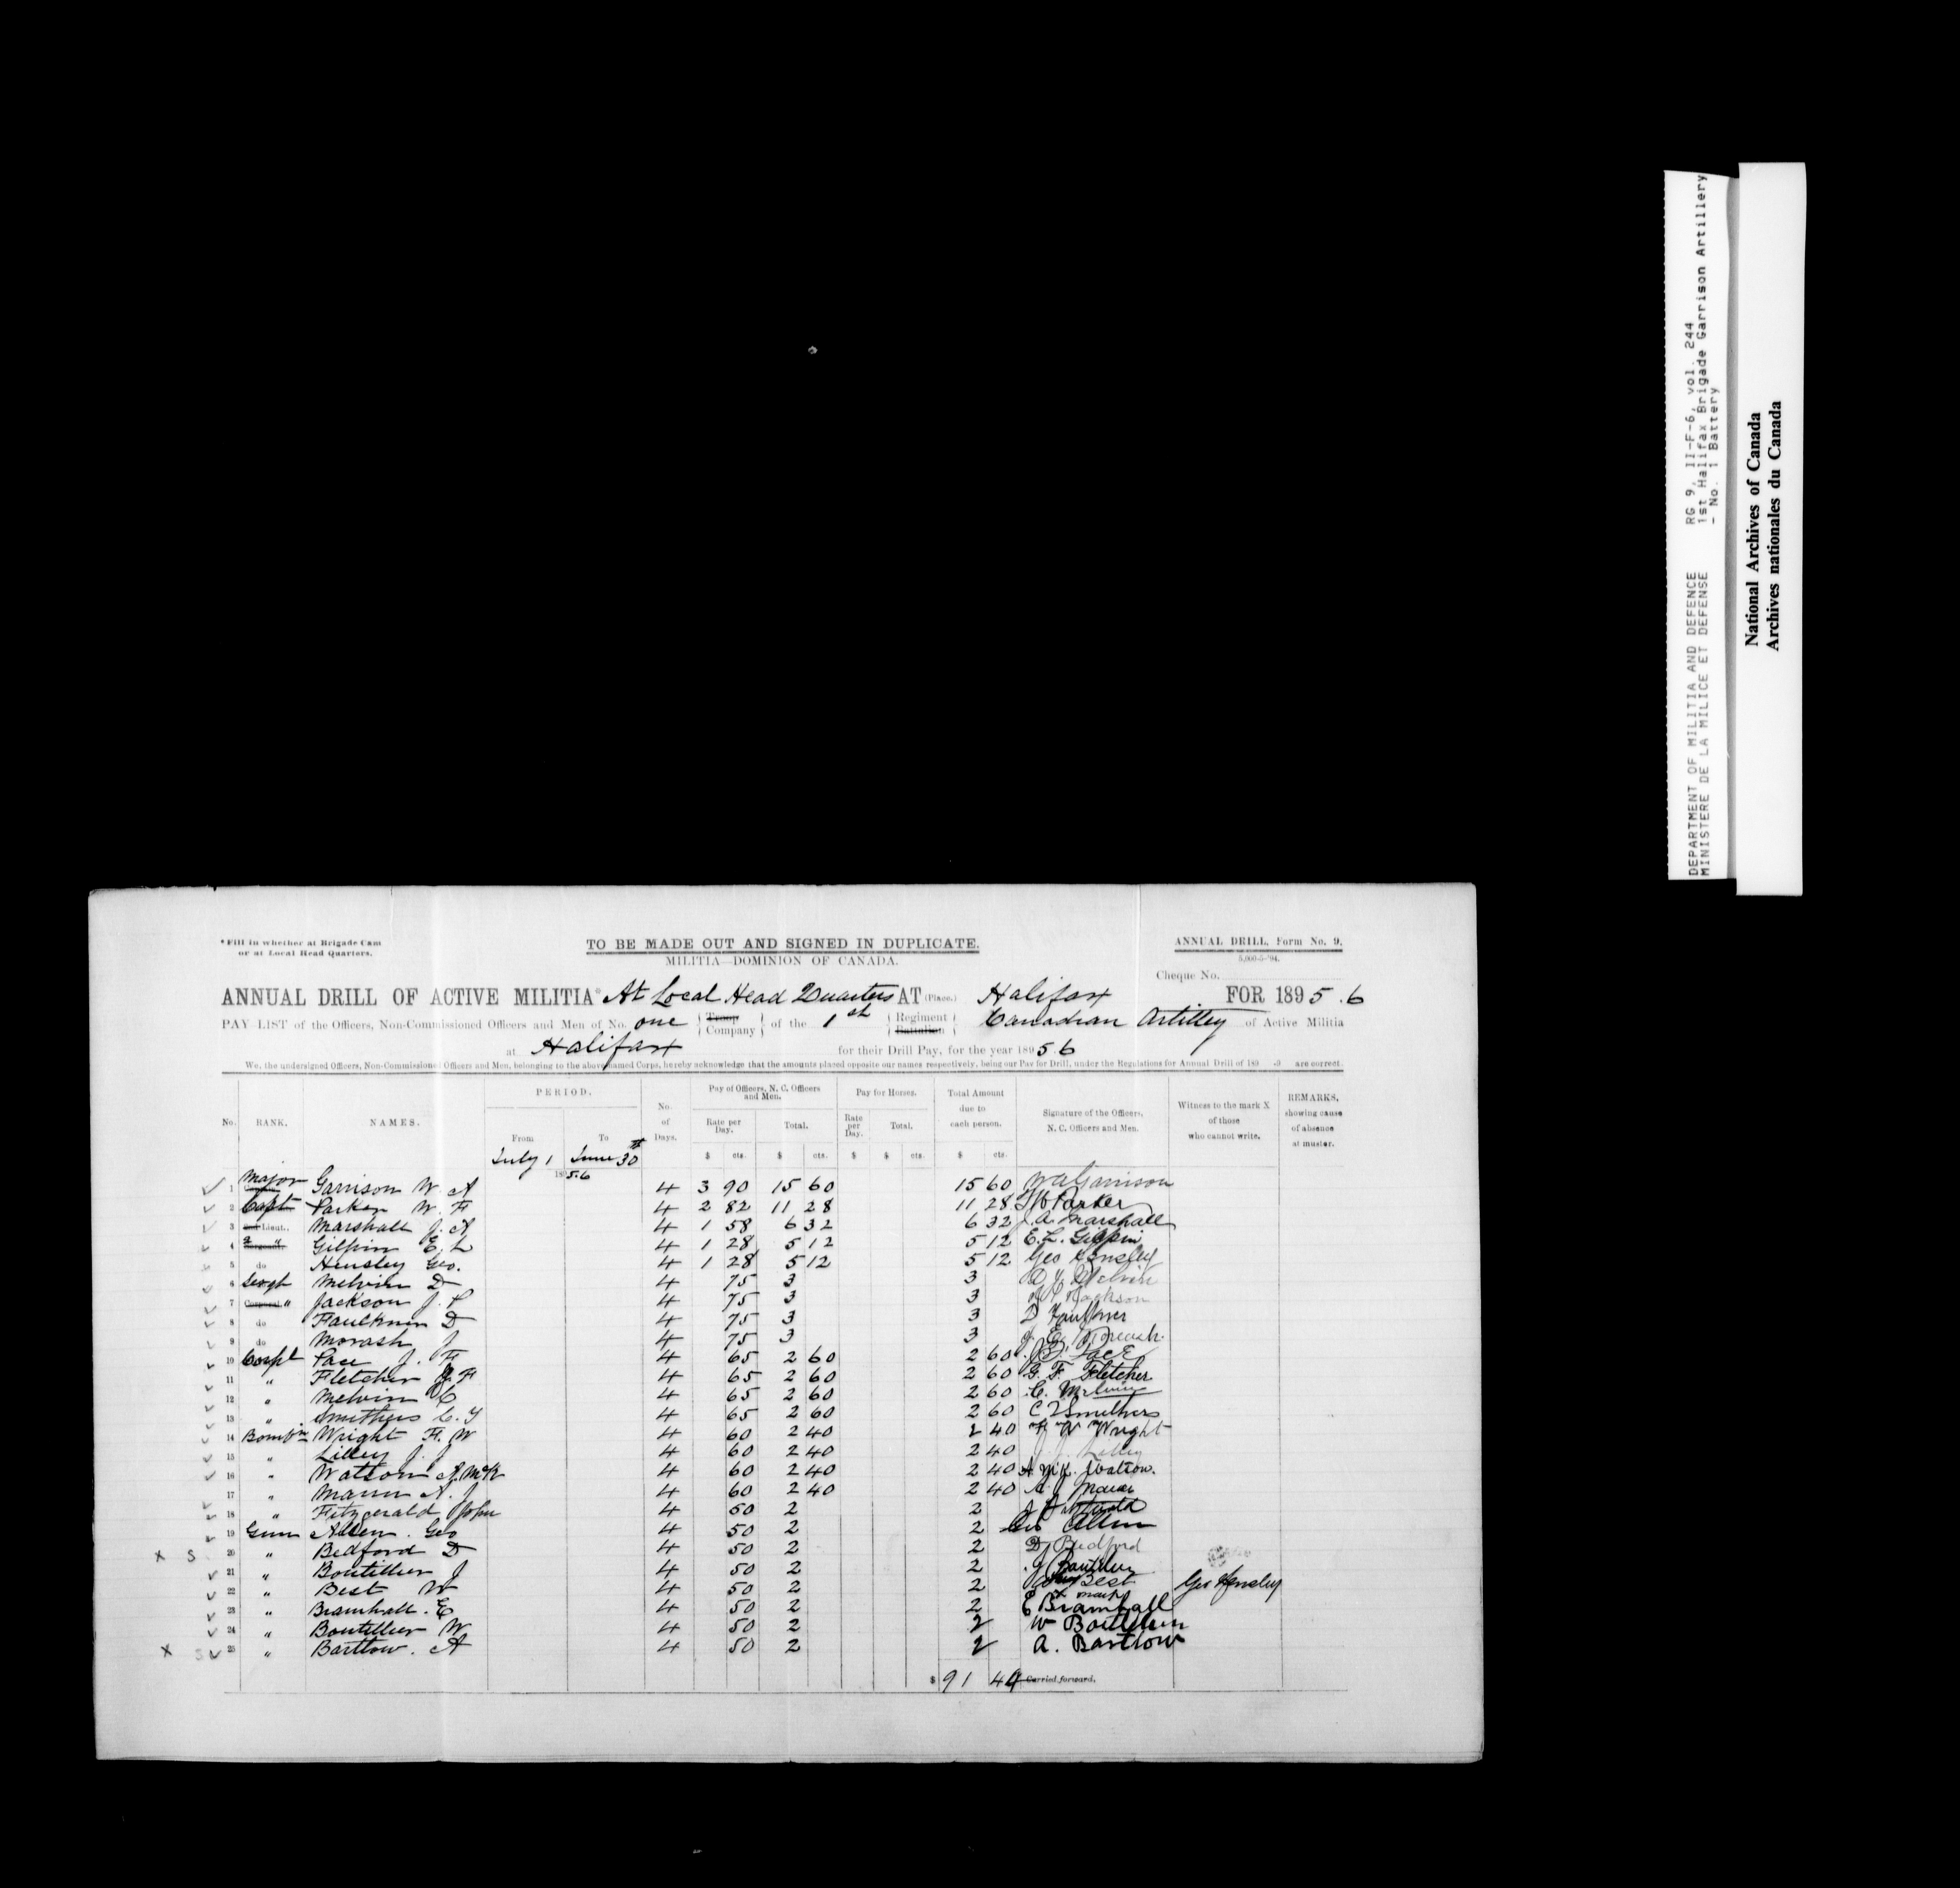 DEPARTMENT OF MILITIA AND DEFENCE
MINISTERE DE LA MILICE ET DEFENSE
RG 9, II-F-6, vol. 244
1st Halifax Brigade Garrison Artillery
- No. 1 Battery
National Archives of Canada
Archives nationales du Canada
*Fill in whether at Brigade Cam
or at Local Head Quarters.
TO BE MADE OUT AND SIGNED IN DUPLICATE.
MILITIA—DOMINION OF CANADA.
ANNUAL DRILL, Form No. 9.
5,000-5-'94.
Cheque No.
ANNUAL DRILL OF ACTIVE MILITIA* At Local Head Quarters AT (Place.) Halifax FOR 1895.6
PAY LIST of the Officers, Non-Commissioned Officers and Men of No. one Troop Company of the 1st Regiment Battalion Canadian Artilley of Active Militia
at Halifax for their Drill Pay, for the year 1895.6
We, the undersigned Officers, Non-Commissioned Officers and Men, belonging to the above named Corps, hereby acknowledge that the amounts placed opposite our names respectively, being our Pay for Drill, under the Regulations for Annual Drill of 189 -9 are correct.
No. RANK. NAMES. PERIOD. From To No. of Days. Pay of Officers, N. C. Officers and Men. Rate per Day. Total. Pay for Horses. Rate per Day. Total. Total Amount due to each person. Signature of the Officers, N. C. Officers and Men. Witness to the mark X of those who cannot write. REMARKS, showing cause of absence at muster.
$ cts. $ cts. $ $ cts. $ cts.
July 1 June 30th
1895.6
1 Major Garrison W. A 4 3 90 15 60 15 60 W A Garrison
2 Capt Parker W. F 4 2 82 11 28 11 28 Parker
3 2nd Lieut. Marshall J. A 4 1 58 6 32 6 32 J. A. Marshall
4 2 " Gilpin E. L 4 1 28 5 12 5 12 E. L. Gilpin
5 do Hensley Geo. 4 1 28 5 12 5 12 Geo Hensley
6 Sergt Melvin D 4 75 3 3 Melvin
7 Corporal " Jackson J. P 4 75 3 3 Jackson
8 do Faulkner D 4 75 3 3 D Faulkner
9 do Morash J 4 75 3 3 J. E. Morash.
10 Corpl Pace J. F 4 65 2 60 2 60 Pace
11 " Fletcher G. F 4 65 2 60 2 60 G. F. Fletcher
12 " Melvin C 4 65 2 60 2 60 C. Melvin
13 " Smithers C. Y 4 65 2 60 2 60 C Y Smithers
14 Bombr Wright F. W 4 60 2 40 2 40 F W Wright
15 " Lilley J. J 4 60 2 40 2 40 J. J. Lilley
16 " Watson A. McK 4 60 2 40 2 40 A. McK. Watson.
17 " Mann A. J 4 60 2 40 2 40 A J
18 " Fitzgerald John 4 50 2 2
19 Gunn Allen. Geo 4 50 2 2 Geo Allen
X S 20 " Bedford D 4 50 2 2 D Bedford
21 " Boutillier J 4 50 2 2 J Boutillier
22 " Best W 4 50 2 2 Best X mark Geo Hensley
23 " Bramhall. E 4 50 2 2 E Bramhall
24 " Boutillier W 4 50 2 2 W Boutillier
X S 25 " Bartlow. A 4 50 2 2 A. Bartlow
$ 91 44 Carried forward.